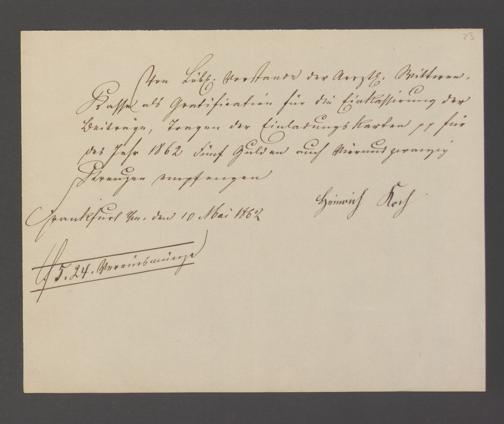 23.
Von Löbl. Vorstande der Aerztl. Wittwen-
Kasse als Gratification für die Einkassierung der
Beiträge, Tragen der Einladungskarten pp für
das Jahr 1862 Fünf Gulden auch Vierundzwanzig
Kreuzer empfangen
Frankfurt den 10 Mai 1862
Heinrich Koch
f 5.24. Vereinsmünze